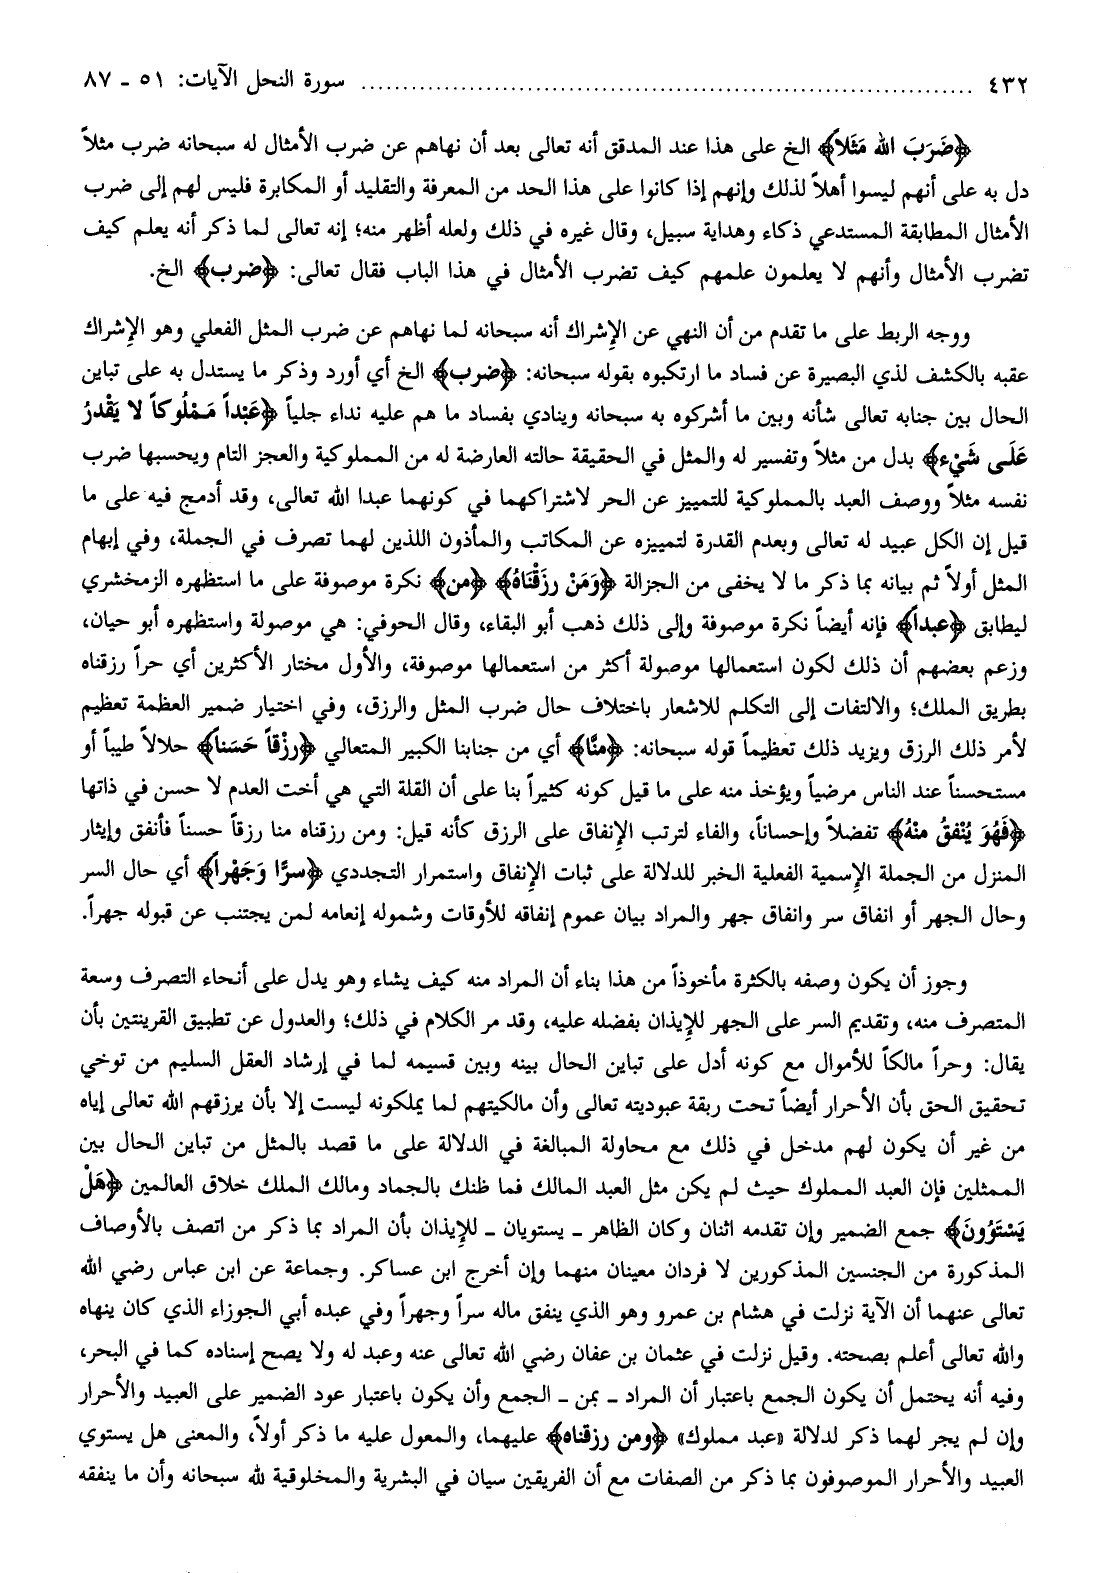 ٤٣٢ ........................................................ سورة النحل الآيات: ٥١ ـ ٨٧
﴿ضَرَبَ الله مَثَلاً﴾ الخ على هذا عند المدقق أنه تعالى بعد أن نهاهم عن ضرب الأمثال له سبحانه ضرب مثلاً
دل به على أنهم ليسوا أهلاً لذلك وإنهم إذا كانوا على هذا الحد من المعرفة والتقليد أو المكابرة فليس لهم إلى ضرب
الأمثال المطابقة المستدعي ذكاء وهداية سبيل، وقال غيره في ذلك ولعله أظهر منه؛ إنه تعالى لما ذكر أنه يعلم كيف
تضرب الأمثال وأنهم لا يعلمون علمهم كيف تضرب الأمثال في هذا الباب فقال تعالى: ﴿ضرب﴾ الخ.
ووجه الربط على ما تقدم من أن النهي عن الإشراك أنه سبحانه لما نهاهم عن ضرب المثل الفعلي وهو الإشراك
عقبه بالكشف لذي البصيرة عن فساد ما ارتكبوه بقوله سبحانه: ﴿ضرب﴾ الخ أي أورد وذكر ما يستدل به على تباين
الحال بين جنابه تعالى شأنه وبين ما أشركوه به سبحانه وينادي بفساد ما هم عليه نداء جلياً ﴿عَبْداً مَمْلُوكاً لا يَقْدرُ
عَلَى شَيْء﴾ بدل من مثلاً وتفسير له والمثل في الحقيقة حالته العارضة له من المملوكية والعجز التام وبحسبها ضرب
نفسه مثلاً ووصف العبد بالمملوكية للتمييز عن الحر لاشتراكهما في كونهما عبدا الله تعالى، وقد أدمج فيه على ما
قيل إن الكل عبيد له تعالى وبعدم القدرة لتمييزه عن المكاتب والمأذون اللذين لهما تصرف في الجملة، وفي إبهام
المثل أولاً ثم بيانه بما ذكر ما لا يخفى من الجزالة ﴿وَمَنْ رزَقْنَاهُ﴾ ﴿من﴾ نكرة موصوفة على ما استظهره الزمخشري
ليطابق ﴿عبداً﴾ فإنه أيضاً نكرة موصوفة وإلى ذلك ذهب أبو البقاء، وقال الحوفي: هي موصولة واستظهره أبو حيان،
وزعم بعضهم أن ذلك لكون استعمالها موصولة أكثر من استعمالها موصوفة، والأول مختار الأكثرين أي حراً رزقناه
بطريق الملك؛ والالتفات إلى التكلم للاشعار باختلاف حال ضرب المثل والرزق، وفي اختيار ضمير العظمة تعظيم
لأمر ذلك الرزق ويزيد ذلك تعظيماً قوله سبحانه: ﴿منَّا﴾ أي من جنابنا الكبير المتعالي ﴿رزْقاً حَسَناً﴾ حلالاً طيباً أو
مستحسناً عند الناس مرضياً ويؤخذ منه على ما قيل كونه كثيراً بنا على أن القلة التي هي أخت العدم لا حسن في ذاتها
﴿فَهُوَ يُنْفقُ منْهُ﴾ تفضلاً وإحساناً، والفاء لترتب الإنفاق على الرزق كأنه قيل: ومن رزقناه منا رزقاً حسناً فأنفق وإيثار
المنزل من الجملة الإسمية الفعلية الخبر للدلالة على ثبات الإنفاق واستمرار التجددي ﴿سرًّا وَجَهْراً﴾ أي حال السر
وحال الجهر أو انفاق سر وانفاق جهر والمراد بيان عموم إنفاقه للأوقات وشموله إنعامه لمن يجتنب عن قبوله جهراً.
وجوز أن يكون وصفه بالكثرة مأخوذاً من هذا بناء أن المراد منه كيف يشاء وهو يدل على أنحاء التصرف وسعة
المتصرف منه، وتقديم السر على الجهر للإيذان بفضله عليه، وقد مر الكلام في ذلك؛ والعدول عن تطبيق القرينتين بأن
يقال: وحراً مالكاً للأموال مع كونه أدل على تباين الحال بينه وبين قسيمه لما في إرشاد العقل السليم من توخي
تحقيق الحق بأن الأحرار أيضاً تحت ربقة عبوديته تعالى وأن مالكيتهم لما يملكونه ليست إلا بأن يرزقهم الله تعالى إياه
من غير أن يكون لهم مدخل في ذلك مع محاولة المبالغة في الدلالة على ما قصد بالمثل من تباين الحال بين
الممثلين فإن العبد المملوك حيث لم يكن مثل العبد المالك فما ظنك بالجماد ومالك الملك خلاق العالمين ﴿هَلْ
يَسْتَوُونَ﴾ جمع الضمير وإن تقدمه اثنان وكان الظاهر ـ يستويان ـ للإيذان بأن المراد بما ذكر من اتصف بالأوصاف
المذكورة من الجنسين المذكورين لا فردان معينان منهما وإن أخرج ابن عساكر. وجماعة عن ابن عباس رضي الله
تعالى عنهما أن الآية نزلت في هشام بن عمرو وهو الذي ينفق ماله سراً وجهراً وفي عبده أبي الجوزاء الذي كان ينهاه
والله تعالى أعلم بصحته. وقيل نزلت في عثمان بن عفان رضي الله تعالى عنه وعبد له ولا يصح إسناده كما في البحر،
وفيه أنه يحتمل أن يكون الجمع باعتبار أن المراد ـ بمن ـ الجمع وأن يكون باعتبار عود الضمير على العبيد والأحرار
وإن لم يجر لهما ذكر لدلالة «عبد مملوك» ﴿ومن رزقناه﴾ عليهما، والمعول عليه ما ذكر أولاً، والمعنى هل يستوي
العبيد والأحرار الموصوفون بما ذكر من الصفات مع أن الفريقين سيان في البشرية والمخلوقية لله سبحانه وأن ما ينفقه